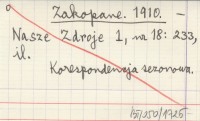 Zakopane. 1910. —
Nasze Zdroje 1, nr 18: 233,
il.
Korespondencja sezonowa.